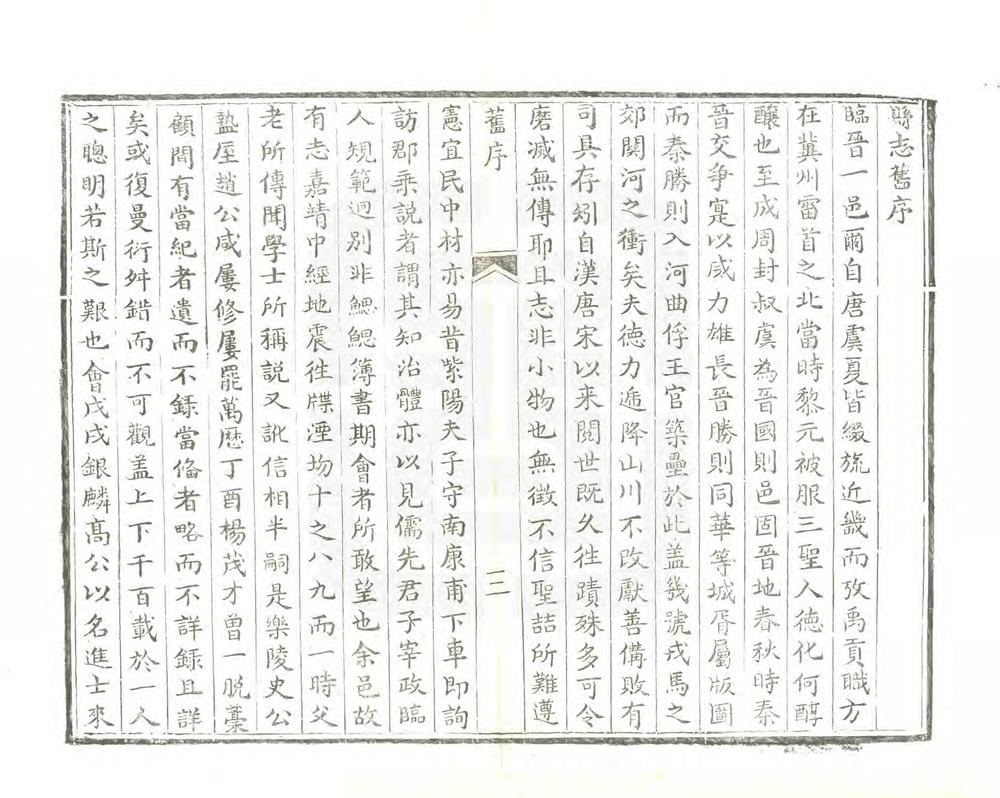 縣志舊序
臨晉一邑爾自唐虞夏皆綴旒近畿而攷禹貢職方
在冀州雷首之北當時黎元被服三聖人德化何醇
釀也至成周封叔虞為晉國則邑固晉地春秋時秦
晉交爭寔以咸力雄長晉勝則同華等城胥屬版圖
而秦勝則入河曲俘王官築壘於此盖幾號戎馬之
郊関河之衝矣夫徳力遞降山川不改獻善備敗有
司具存矧自漢唐宋以来閱世既久徃蹟殊多可令
磨滅無傳耶且志非小物也無徴不信聖喆所難遵
舊序
三
憲宜民中材亦易昔紫陽夫子守南康甫下車即詢
訪郡乘説者謂其知治體亦以見儒先君子宰政臨
人䂓範迥别非鰓鰓簿書期會者所敢望也余邑故
有志嘉靖中經地震徃牒湮圽十之八九而一時父
老所傳聞學士所稱説又訛信相半嗣是樂陵史公
盩厔趙公咸屢修屢罷萬歷丁酉楊茂才曽一脱藁
顧間有當紀者遺而不録當俻者略而不詳録且詳
矣或復曼衍舛錯而不可觀盖上下千百載於一人
之聰明若斯之艱也會戊戌銀麟髙公以名進士來